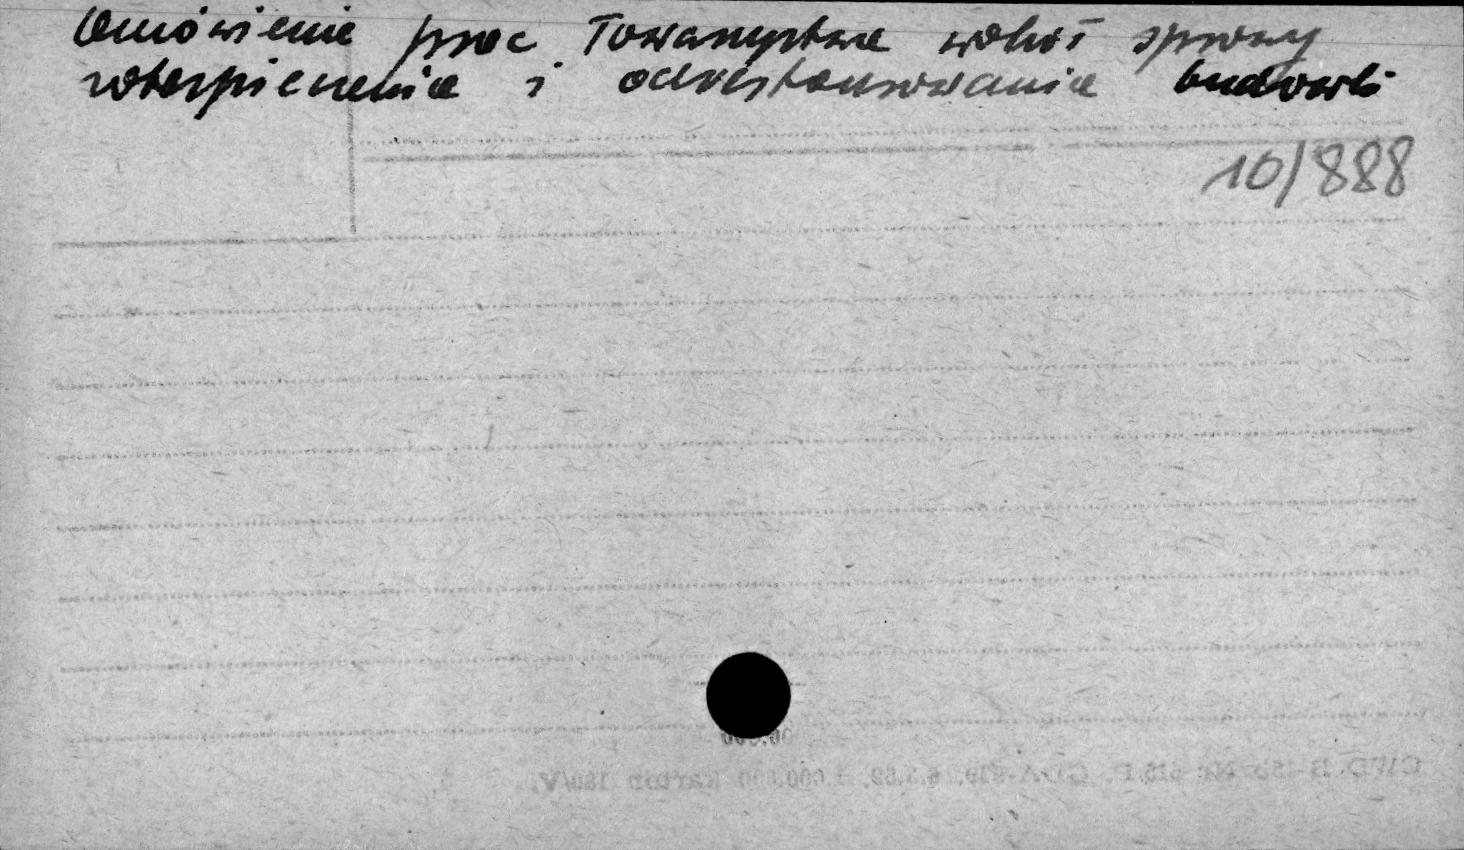 Omówienie prac Towarzystwa wokół sprawy
zabezpieczenia i odrestaurowania budowli
10/888